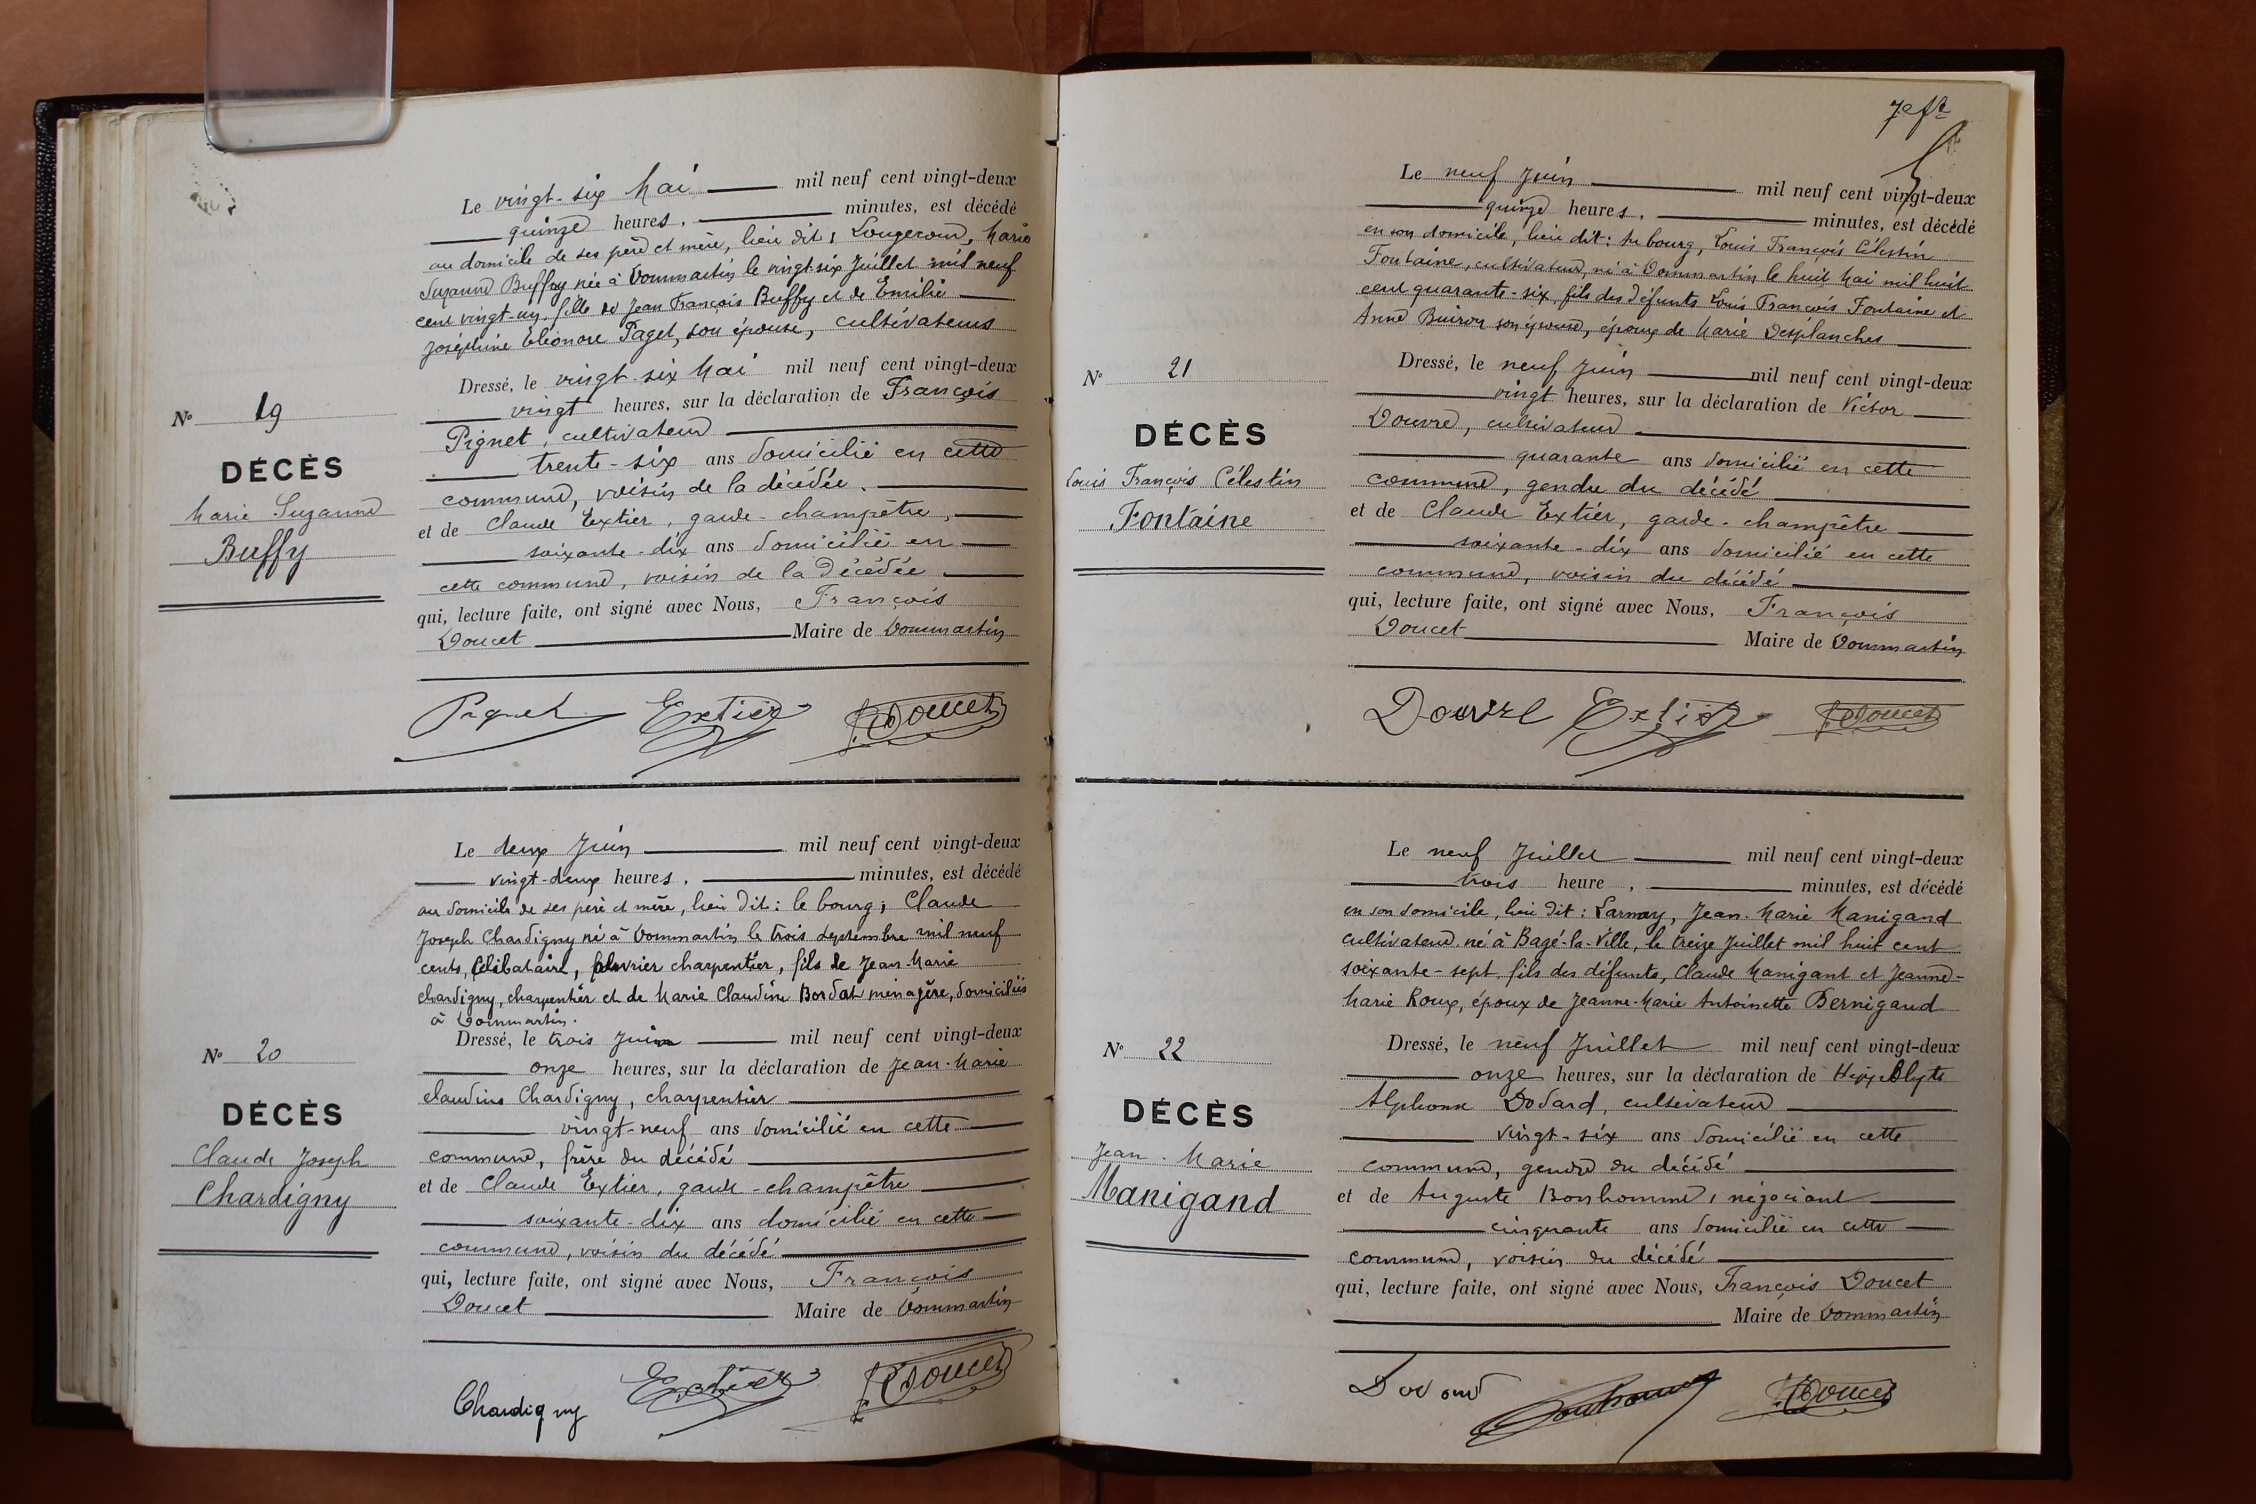 Le vingt-six Mai mil neuf cent vingt-deux
quinze heures, minutes, est décédé
au domicile de ses père et mère, lieu dit, Marie
Suzanne Buffy née à Dommartin le vingt-six Juillet mil neuf
cent vingt-un, fille de Jean François Buffy et de Emilie
Joséphine Eléonore Paget, son épouse, cultivateurs
Dressé, le vingt-six Mai mil neuf cent vingt-deux
vingt heures, sur la déclaration de François
Pignet, cultivateur
trente-six ans domicilié en cette
commune, voisin de la décédée.
et de Claude Extier, garde-champêtre,
soixante-dix ans domicilié en
cette commune, voisin de la décédée
qui, lecture faite, ont signé avec Nous, François
Doucet Maire de Dommartin
N° 19
DÉCÈS
Marie Suzanne
Buffy
Pignet Extier F. Doucet
Le deux Juin mil neuf cent vingt-deux
vingt-deux heures, minutes, est décédé
au domicile de ses père et mère, lieu dit: le bourg, Claude
Joseph Chardigny né à Dommartin le trois septembre mil neuf
cents, célibataire, ouvrier charpentier, fils de Jean-Marie
Chardigny, charpentier et de Marie Claudine Bordat ménagère, domiciliés
à Dommartin.
Dressé, le trois Juin mil neuf cent vingt-deux
onze heures, sur la déclaration de Jean-Marie
Claudius Chardigny, charpentier
vingt-neuf ans domicilié en cette
commune, frère du décédé
et de Claude Extier, garde-champêtre
soixante-dix ans domicilié en cette
commune, voisin du décédé
qui, lecture faite, ont signé avec Nous, François
Doucet Maire de Dommartin
N° 20
DÉCÈS
Claude Joseph
Chardigny
Chardigny Extier F. Doucet
7e ft
Le neuf Juin mil neuf cent vingt-deux
quinze heures, minutes, est décédé
en son domicile, lieu dit: Au bourg, Louis François Célestin
Fontaine, cultivateur, né à Dommartin le huit Mai mil huit
cent quarante-six, fils des défunts Louis François Fontaine et
Anne Buiron son épouse, époux de Marie Desplanches
Dressé, le neuf Juin mil neuf cent vingt-deux
vingt heures, sur la déclaration de Victor
Douvre, cultivateur
quarante ans domicilié en cette
commune, gendre du décédé
et de Claude Extier, garde-champêtre
soixante-dix ans domicilié en cette
commune, voisin du décédé
qui, lecture faite, ont signé avec Nous, François
Doucet Maire de Dommartin
N° 21
DÉCÈS
Louis François Célestin
Fontaine
Douvre Extier F. Doucet
Le neuf Juillet mil neuf cent vingt-deux
trois heure, minutes, est décédé
en son domicile, lieu dit: Larnay, Jean-Marie Manigand
cultivateur né à Bagé-la-Ville, le treize Juillet mil huit cent
soixante-sept, fils des défunts, Claude Manigant et Jeanne-
Marie Roux, époux de Jeanne-Marie Antoinette Bernigaud
Dressé, le neuf Juillet mil neuf cent vingt-deux
onze heures, sur la déclaration de Hippolyte
Alphonse Dodard, cultivateur
vingt-six ans domicilié en cette
commune, gendre du décédé
et de Auguste Bonhomme, négociant
cinquante ans domicilié en cette
commune, voisin du décédé
qui, lecture faite, ont signé avec Nous, François Doucet
Maire de Dommartin
N° 22
DÉCÈS
Jean-Marie
Manigand
Bonhomme F. Doucet